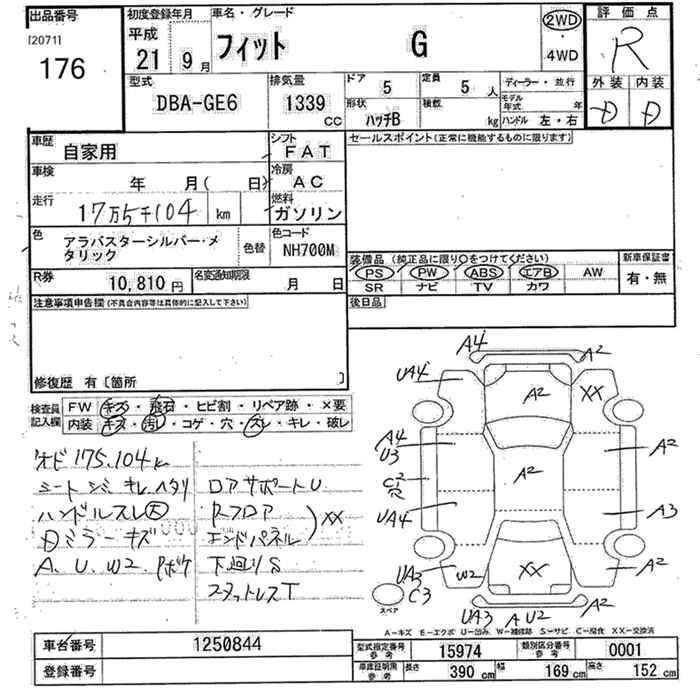 出品番号
[2071]
176
初度登録年月
平成
21 9月
車名・グレード
フィット G
2WD
・
4WD
評価点
R
外装 内装
D D
型式
DBA-GE6
排気量
1339 CC
ドア 5
定員 5 人
形状 ハッチB
積載 kg
ディーラー・並行
モデル年式 年
ハンドル 左・右
車歴
自家用
シフト
FAT
車検
年 月( 日)
冷房
AC
走行
17万5千104 km
燃料
ガソリン
色
アラバスターシルバー・メタリック
色替
色コード
NH700M
R券
10,810円
名変通知期限
月 日
注意事項申告欄(不具合内容等は具体的に記入して下さい)
修復歴 有〔箇所 〕
セールスポイント(正常に機能するものに限ります)
装備品(純正品に限り○をつけてください)
PS PW ABS エアB AW
SR ナビ TV カワ
新車保証書
有・無
後日品
検査員記入欄
FW キズ・飛石・ヒビ割・リペア跡・×要
内装 キズ・汚れ・コゲ・穴・スレ・キレ・破レ
オド175.104k
シートシミキレ、ヘタリ
ハンドルスレ大
Dミラーキズ
A、U、W2、Pボケ
ロアサポートU
Rフロア
エンドパネル
XX
下廻りS
スタットレスT
A4 A2
UA4 A2 XX
A4
U3
A2
C2
A2
UA4 A3
UA3 W2 XX A2
スペア
C3
UA3 A U2 A2
A-キズ E-エクボ U-凹み W-補修跡 S-サビ C-腐食 XX-交換済
車台番号 1250844
登録番号
型式指定番号 参考 15974
類別区分番号 参考 0001
車庫証明用 参考 長さ 390 cm 幅 169 cm 高さ 152 cm